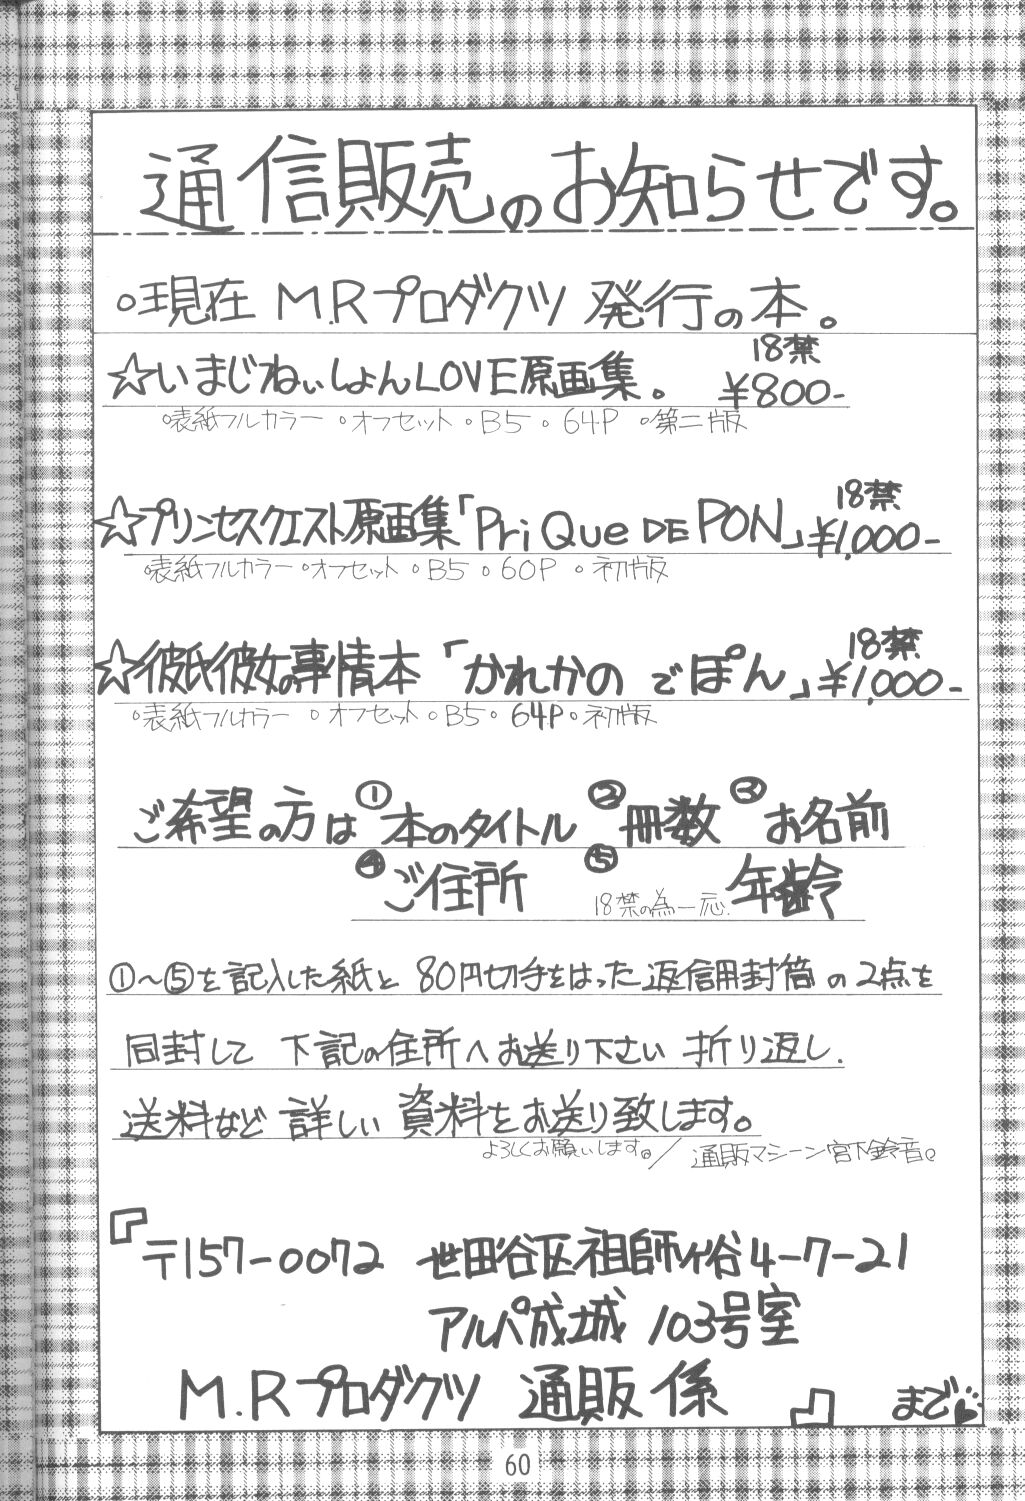 通信販売のお知らせです。
○現在 M.Rプロダクツ 発行の本。
☆いまじねぃしょんLOVE原画集。 18禁 ¥800-
○表紙フルカラー ○オフセット ○B5 ○64P ○第二版
☆プリンセスクエスト原画集「Pri Que DE PON」 18禁 ¥1,000-
○表紙フルカラー ○オフセット ○B5 ○60P ○初版
☆彼氏彼女の事情本「かれかの でぽん」 18禁 ¥1,000-
○表紙フルカラー ○オフセット ○B5 ○64P ○初版
ご希望の方は ①本のタイトル ②冊数 ③お名前
④ご住所 ⑤18禁の為一応.年齢
①~⑤を記入した紙と 80円切手をはった返信用封筒の2点を
同封して 下記の住所へお送り下さい 折り返し.
送料など 詳しい 資料をお送り致します。
よろしくお願いします。/ 通販マシーン宮下鈴音。
『〒157-0072 世田谷区祖師ヶ谷4-7-21
アルパ成城 103号室
M.Rプロダクツ 通販係 』 まで
60